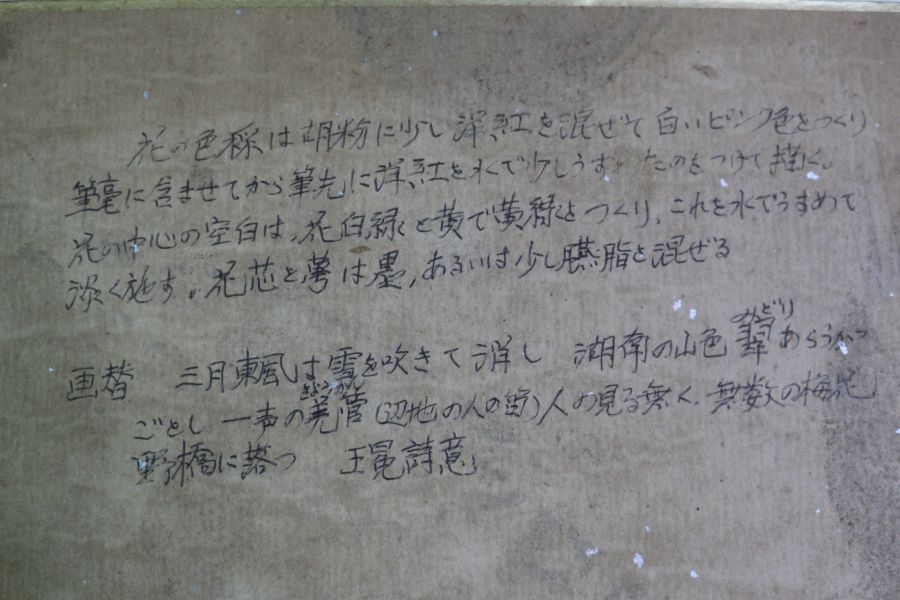 花の色稞は胡粉に少し洋紅を混ぜて白いピンク色をつくり
筆毫に含ませてから筆先に洋紅を水で少しうすたのをつけて描く。
花の中心の空白は、花白緑と黄で黄緑をつくり、これを水でうすめて
淡く施す。花芯と萼は墨、あるいは少し臙脂を混ぜる
画替 三月東風は雪を吹きて消し 湖南の山色翠みどりあらうが
ごとし 一声の羌管きょうかん(辺地の人の笛)人の見る無く、無数の梅花
野橋に落つ 王冕詩意